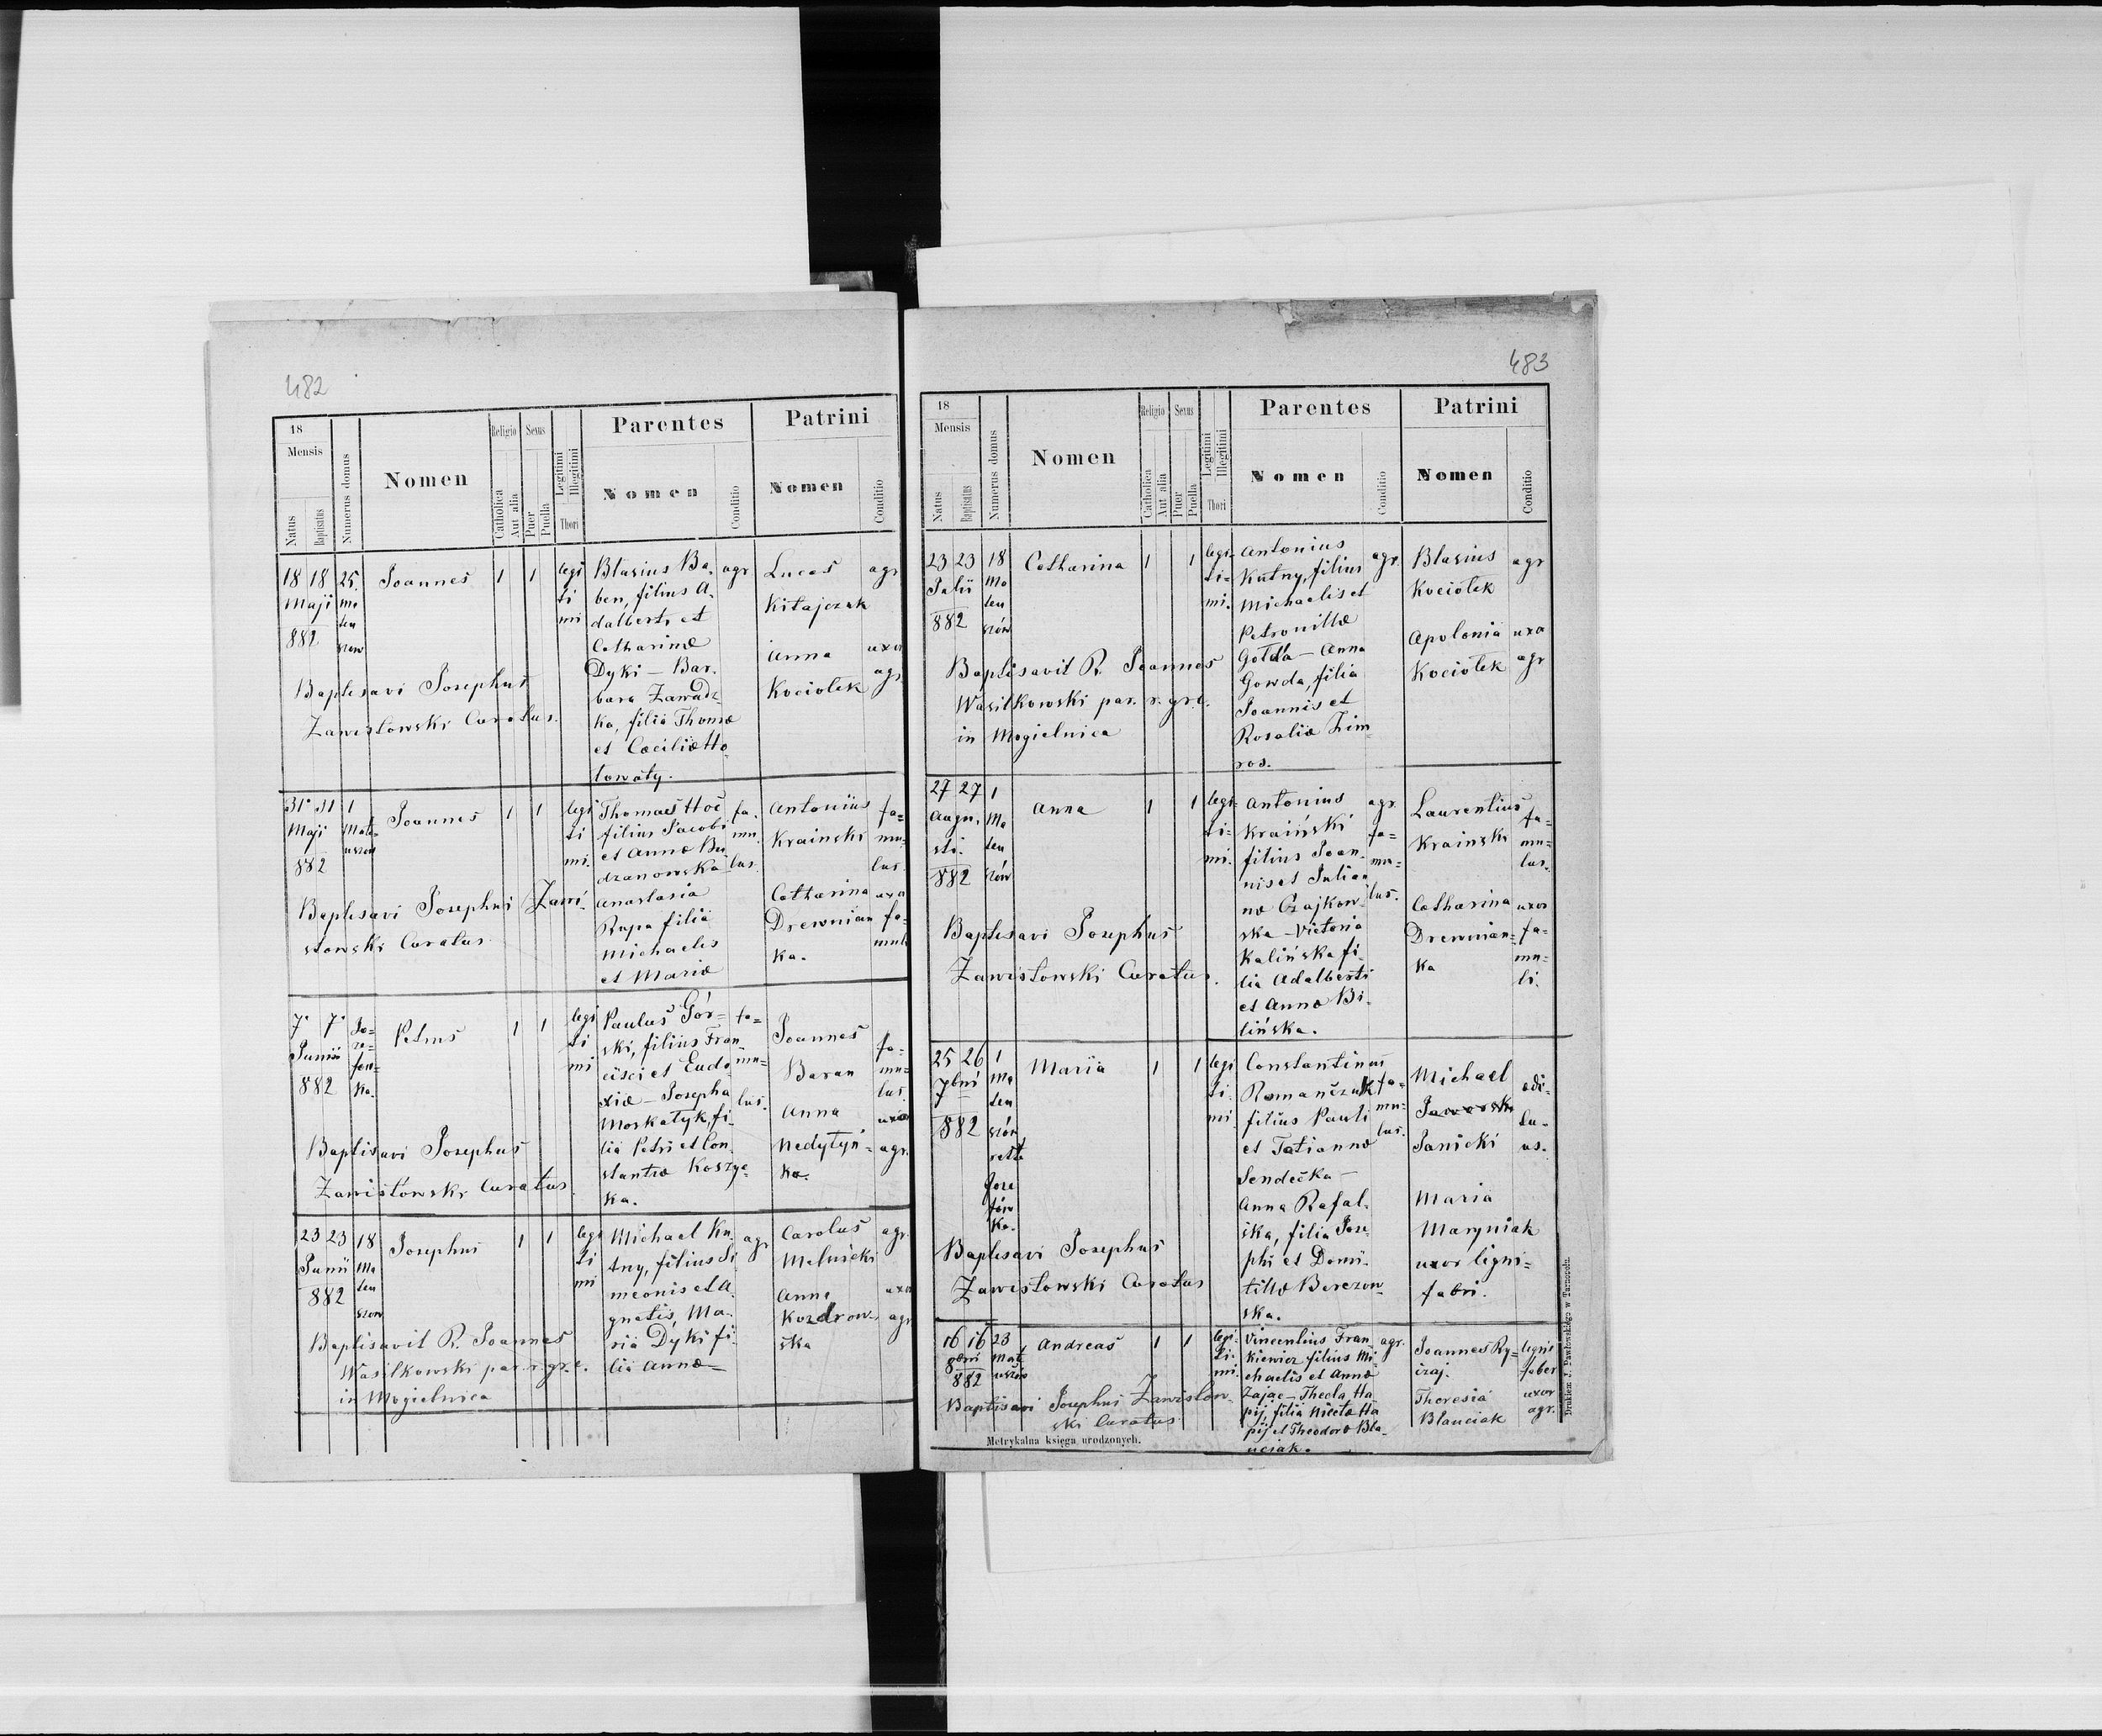 482
18
Mensis
Natus
Baptisatus
Numerus domus
Nomen
Religio
Catholica
Aut alia
Sexus
Puer
Puella
Legitimi
Illegitimi
Thori
Parentes
Nomen
Conditio
Patrini
Nomen
Conditio
18 18 25
Maji Ma
den
882 szow
Joannes
1 1
legi
ti
mi
Blasius Ba-
ben, filius A-
dalberti et
Catharinæ
Dyki — Bar-
bara Zawadz-
ka, filia Thomæ
et Cæciliæ Ho-
lowaty.
agr
Lucas
Kitajczak
agr
Anna
Kociolek
uxor
agr
Baptisavi Josephus
Zawisłowski Curatus.
31 31 1
Maji Mat
uszow
882
Joannes
1 1
legi
ti
mi.
Thomas Hoc
filius Jacobi
et Annæ Bu
dzanowska
Anastasia
Rupa filia
Michaelis
et Mariæ
fa-
mu
lus.
Antonius
Krainski
fa=
mu=
lus.
Catharina
Drewnian
ka.
uxor
fa-
muli
Baptisavi Josephus Zawi-
słowski Curatus
7 7 Jo=
Junii ze=
fow=
882 ka.
Petrus
1 1
legi
ti
mi
Paulus Gór=
ski, filius Fran
cisci et Eudo-
xiæ — Josepha
Moskatyk, fi-
lia Petri et Con-
stantiæ Koszyc-
ka.
fa=
mu=
lus.
Joannes
Baran
fa-
mu=
lus.
Anna
Nedytyń=
ka.
uxor
agr.
Baptisavi Josephus
Zawisłowski Curatus
23 23 18
Junii Ma
den
882 szow
Josephus
1 1
legi
ti
mi
Michael Ku-
tny, filius Si
meonis et A-
gnetis, Ma-
ria Dyki fi-
lia Annæ —
agr
Carolus
Melnicki
agr.
Anna
Kozdrow-
ska
uxor
agr
Baptisavit R. Joannes
Wasilkowski par. r. gr. c.
in Mogielnica
483
18
Mensis
Natus
Baptisatus
Numerus domus
Nomen
Religio
Catholica
Aut alia
Sexus
Puer
Puella
Legitimi
Illegitimi
Thori
Parentes
Nomen
Conditio
Patrini
Nomen
Conditio
23 23 18
Julii Ma
den
882 szów
Catharina
1 1
legi-
ti=
mi.
Antonius
Kutny, filius
Michaelis et
Petronillæ
Golda — Anna
Gowda, filia
Joannis et
Rosaliæ Zim
ros.
agr.
Blasius
Kociolek
agr
Apolonia
Kociolek
uxor
agr
Baptisavit R. Joannes
Wasilkowski par. r. gr. c.
in Mogielnica
27 27 1
Augu- Ma
sti. den
882 szów
Anna
1 1
legi=
ti=
mi.
Antonius
Kraiński
filius Joan-
nis et Julian-
næ Czajkow-
ska — Victoria
Kalińska fi-
lia Adalberti
et Annæ Bi-
lińska.
agr.
fa=
mu=
lus.
Laurentius
Krainski
fa=
mu=
lus.
Catharina
Drewnian=
ka
uxor
fa-
mu=
li.
Baptisavi Josephus
Zawisłowski Curatus.
25 26 1
7bris Ma
den
882 szów
recte
Joze
fów
ka.
Maria
1 1
legi
ti.
mi.
Constantinus
Romańczuk
filius Pauli
et Tatiannæ
Sendecka —
Anna Rafal-
ska, filia Jose-
phi et Domi-
tillæ Berezow-
ska.
fa=
mu=
lus.
Michael
Jaworski
Janicki
ædi-
tu-
us.
Maria
Maryniak
uxor ligni=
fabri.
Baptisavi Josephus
Zawisłowski Curatus
16 16 23
8bris Mat
882 uszów
Andreas
1 1
legi-
ti-
mi.
Vincentius Fran
kiewicz filius Mi-
chaelis et Annæ
Zajac — Thecla Ha
pij, filia Nicetæ Ha
pij et Theodoræ Bla-
uciak.
agr.
Joannes Ry-
czaj.
ligni
faber
Theresia
Blauciak
uxor
agr.
Baptisavi Josephus Zawisłow-
ski Curatus
Metrykalna księga urodzonych.
Drukiem J. Pawłowskiego w Tarnopolu.